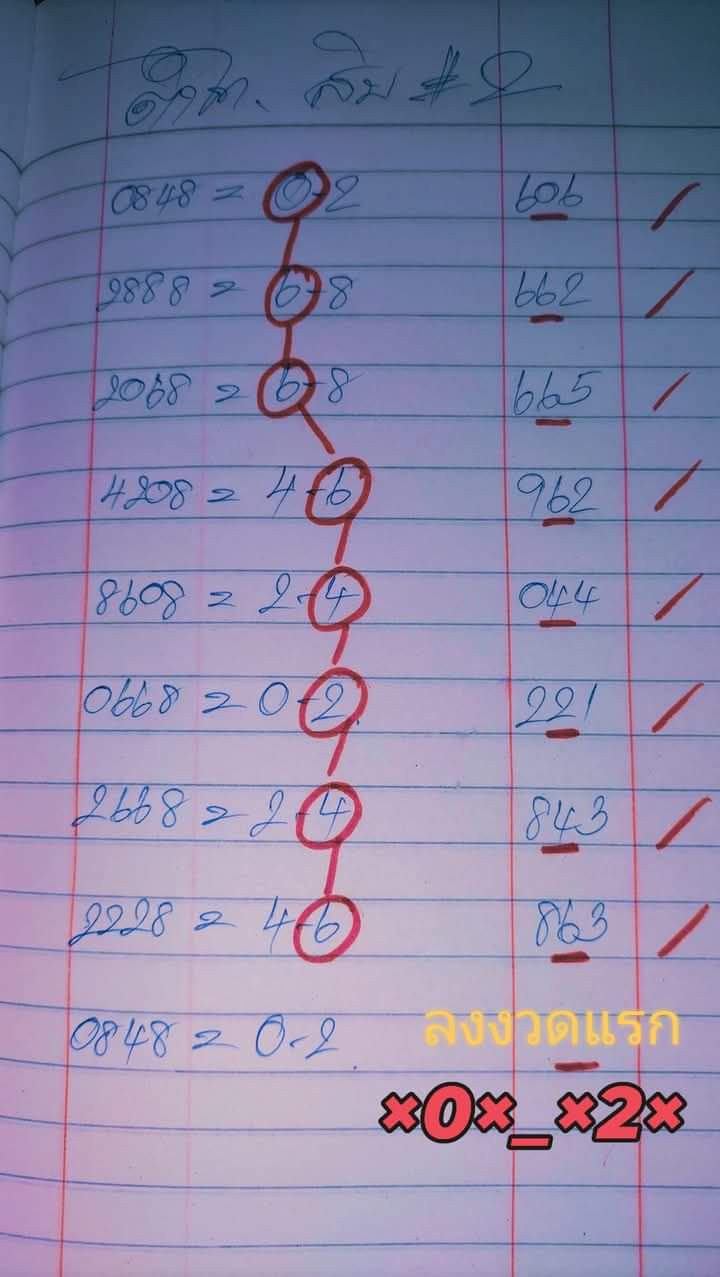 สิบ #2
0848 = 0-2 606
2888 = 6-8 662
2068 = 6-8 665
4208 = 4-6 962
8608 = 2-4 044
0668 = 0-2 221
2668 = 2-4 843
2228 = 4-6 863
0848 = 0-2 ลงงวดแรก
×0×_×2×